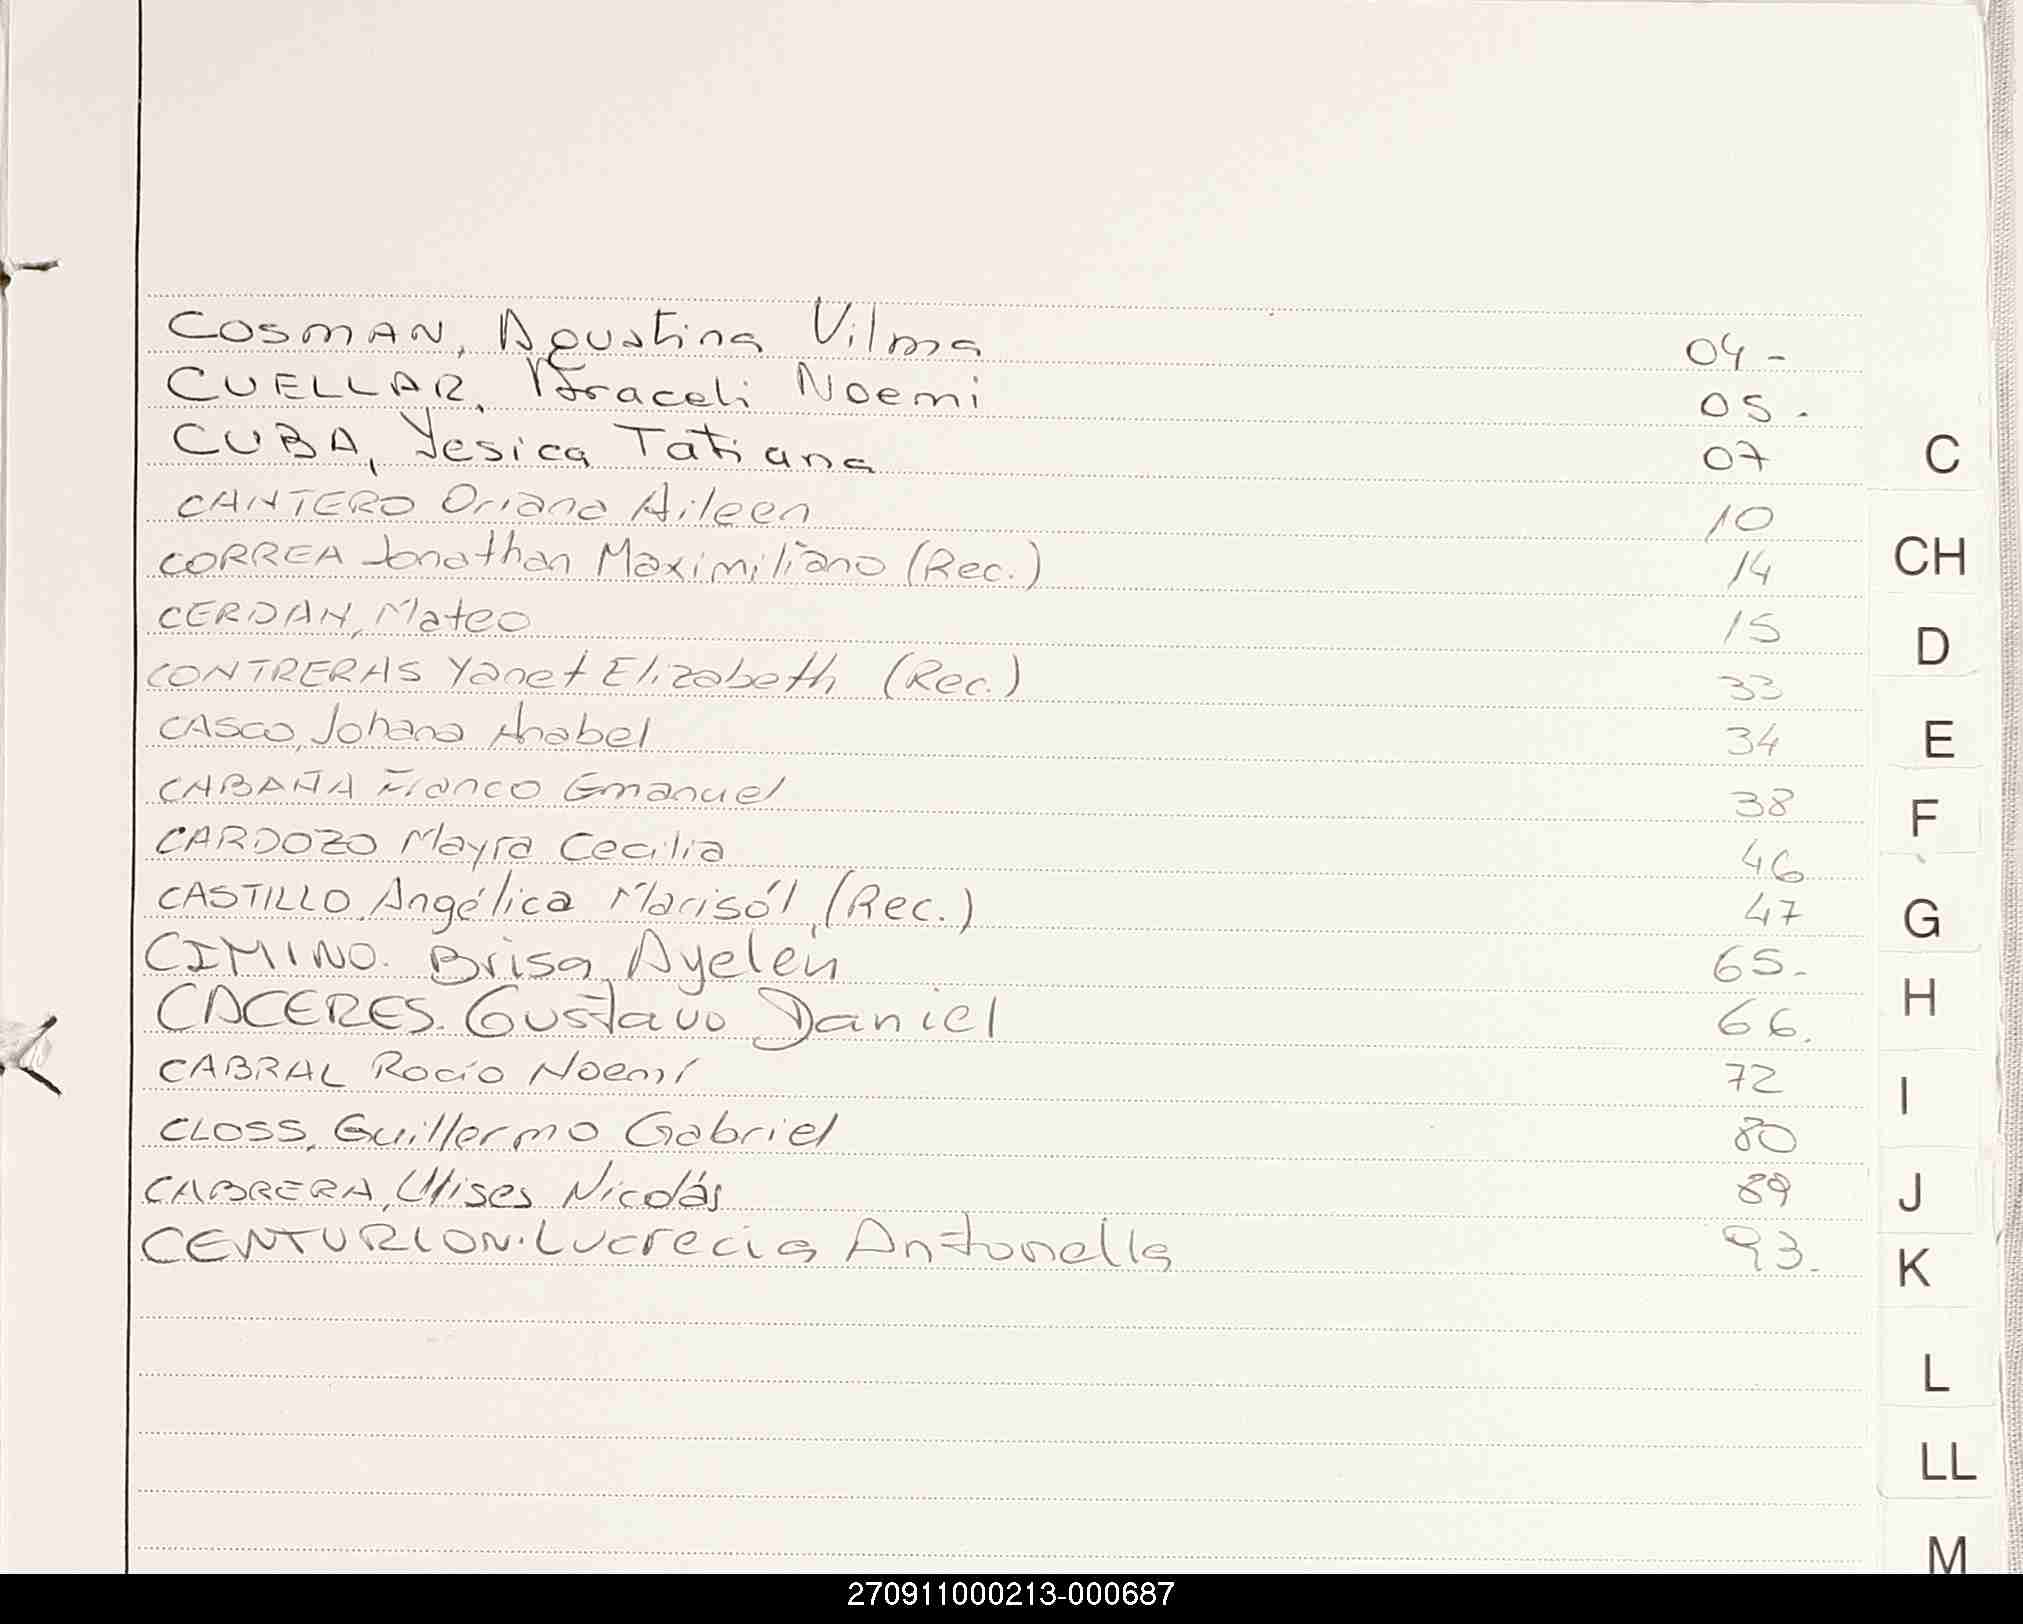 COSMAN, Agustina Vilma 04-
CUELLAR, Araceli Noemi 05.
CUBA, Yesica Tatiana 07
C
CANTERO Oriana Aileen 10
CORREA Jonathan Maximiliano (Rec.) 14
CH
CERDAN, Mateo 15
D
CONTRERAS Yanet Elizabeth (Rec.) 33
CASCO, Johana Anabel 34
E
CABAÑA Franco Emanuel 38
F
CARDOZO Mayra Cecilia 46
CASTILLO, Angélica Marisól (Rec.) 47
G
CIMINO. Brisa Ayelén 65-
H
CACERES. Gustavo Daniel 66.
CABRAL Rocío Noemí 72
I
CLOSS, Guillermo Gabriel 80
CABRERA, Ulises Nicolás 89
J
CENTURION. Lucrecia Antonella 93.
K
L
LL
M
270911000213-000687